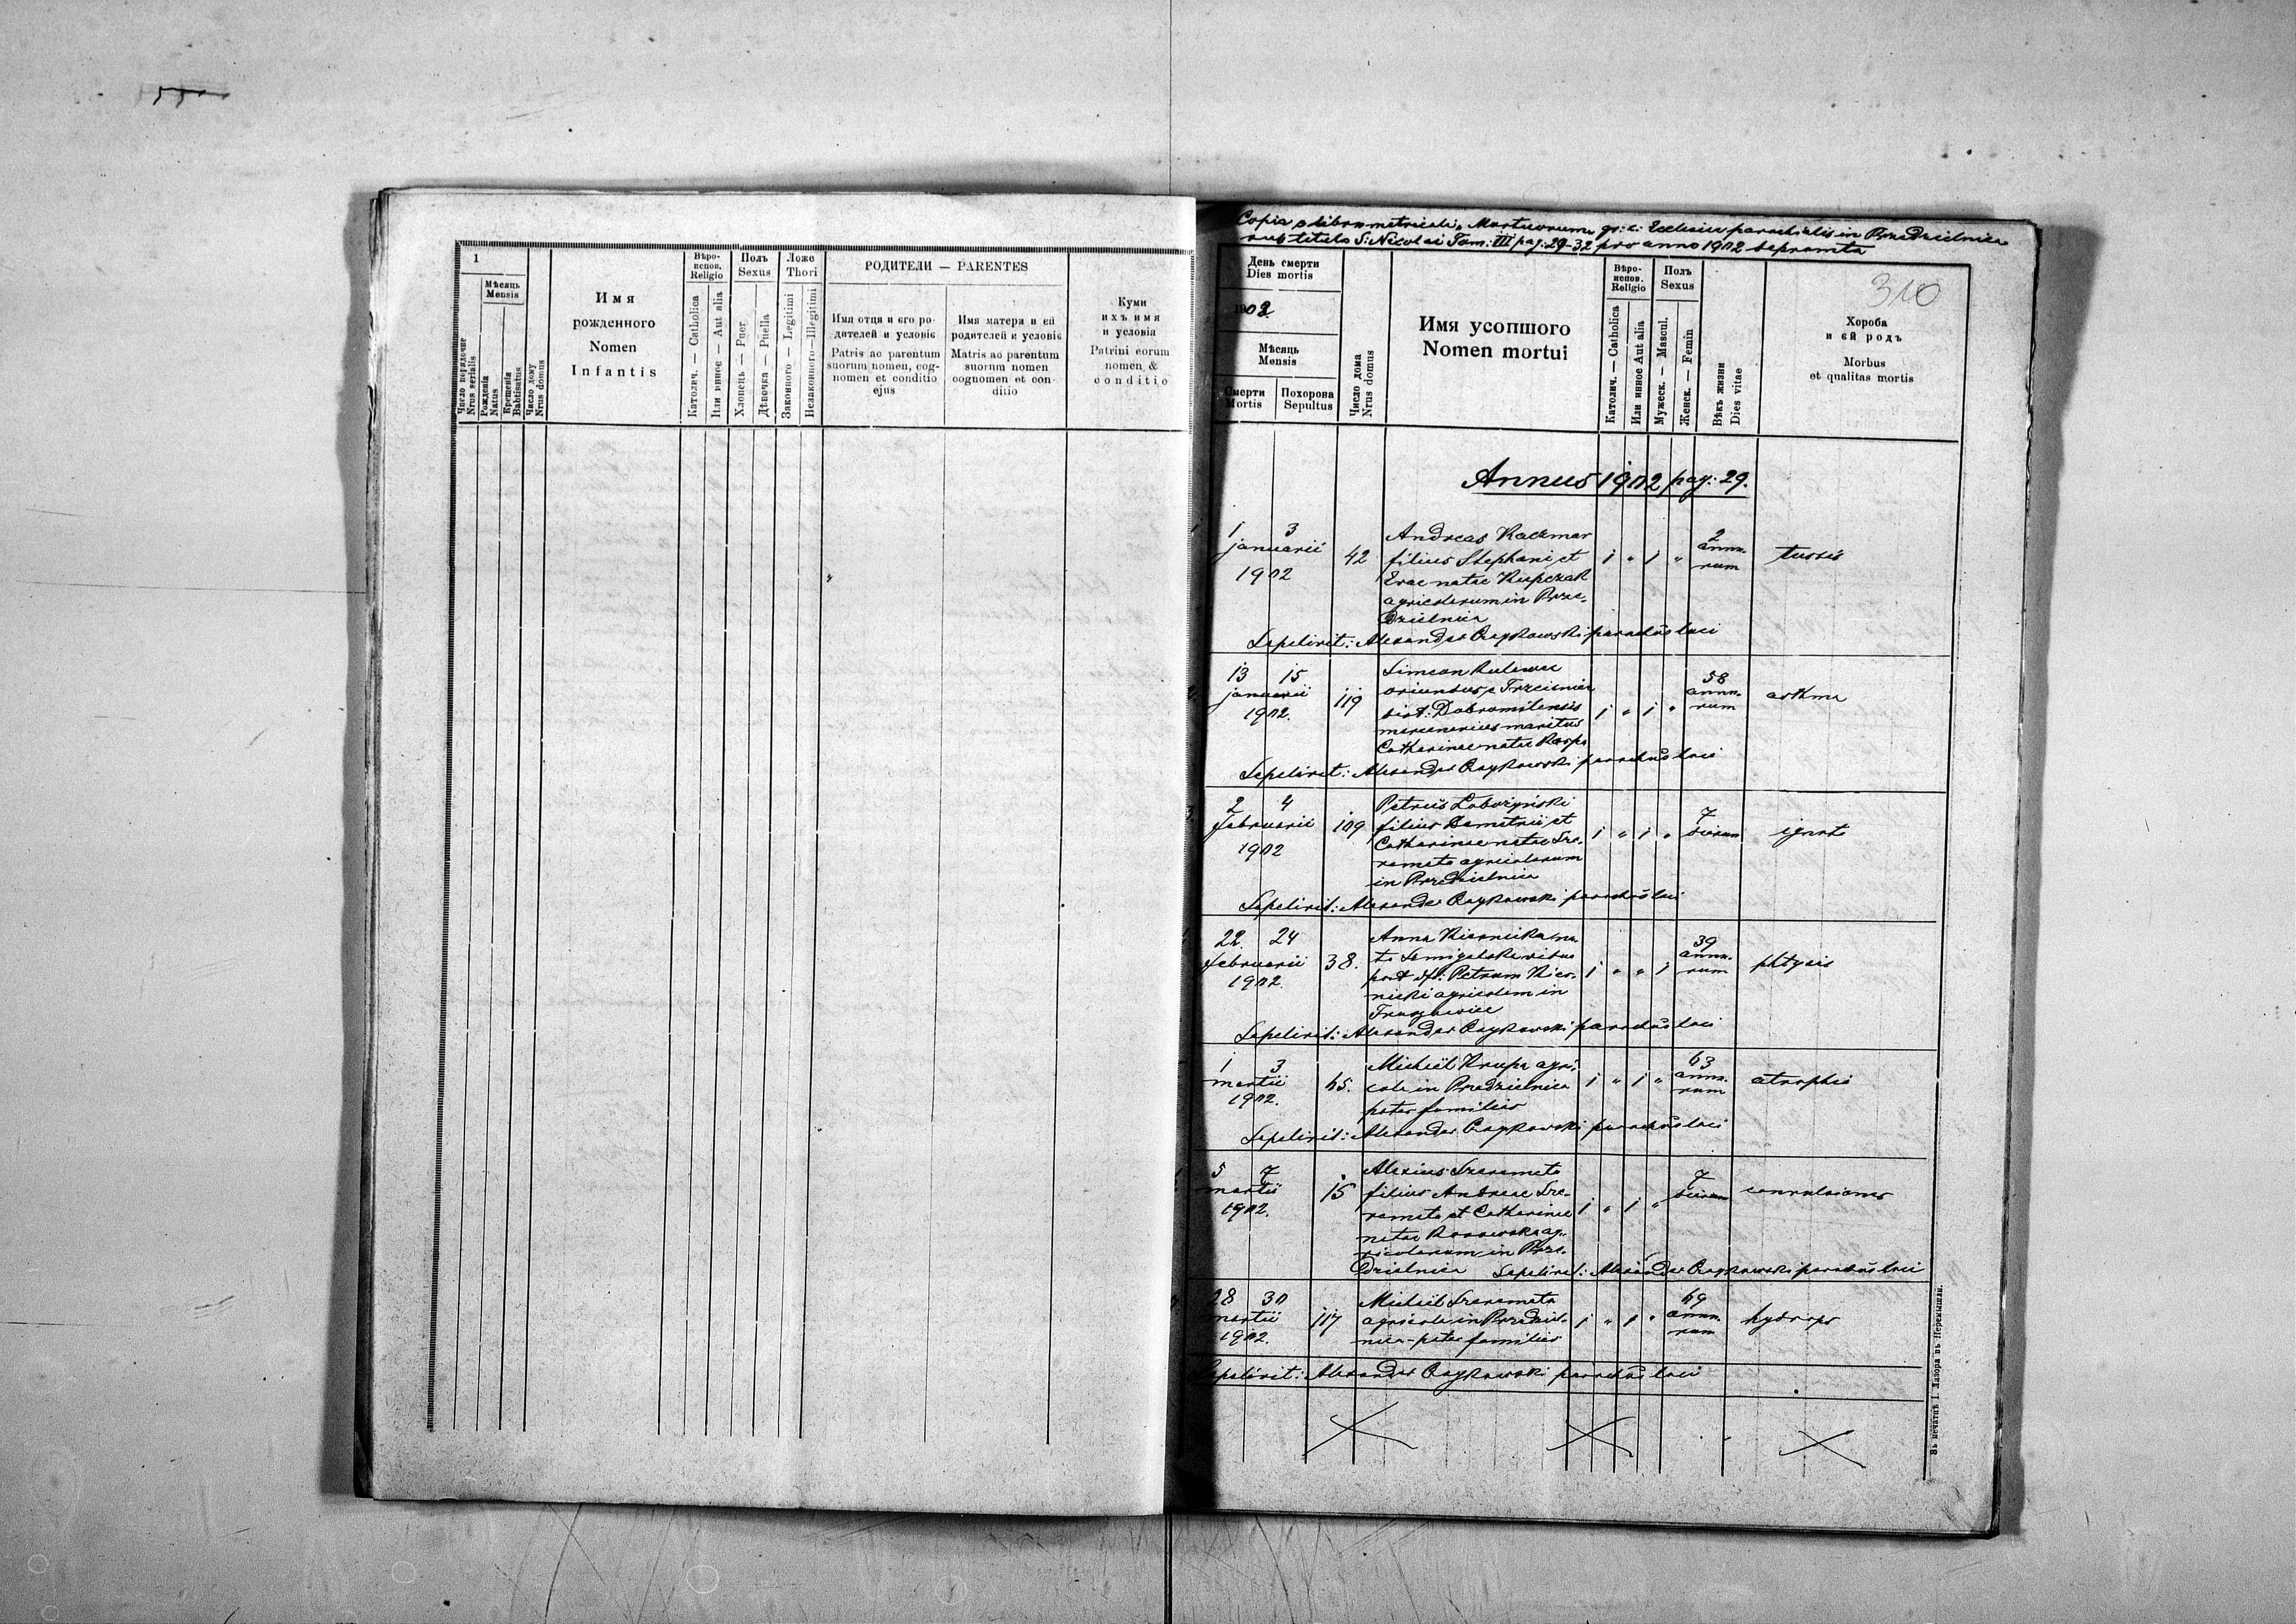 1
Мѣсяць
Mensis
Число порядочне
Nrus serialis
Рожденія
Natus
Крещенія
Babtisatus
Число дому
Nrus domus
Имя
рожденного
Nomen
Infantis
Вѣро-
испов.
Religio
Католич. — Catholica
Или инное — Aut alia
Полъ
Sexus
Хлопець — Puer
Дѣвочка — Puella
Ложе
Thori
Законного — Legitimi
Незаконного — Illegitimi
РОДИТЕЛИ — PARENTES
Имя отця и его ро-
дителей и условіє
Patris ac parentum
suorum nomen, cog-
nomen et conditio
ejus
Имя матери и ей
родителей и условіє
Matris ac parentum
suorum nomen
cognomen et con-
ditio
Куми
ихъ имя
и условія
Patrini eorum
nomen, &
conditio
Copia e libro metricali Mortuorum gr: c: Ecclesiae parochialis in Brzedzielnica
sub titulo S: Nicolai Tom: III pag: 29-32 pro anno 1902 depromta
310
День смерти
Dies mortis
1902
Мѣсяць
Mensis
Смерти
Mortis
Похорона
Sepultus
Число дома
Nrus domus
Имя усопшого
Nomen mortui
Вѣро-
испов.
Religio
Католич. — Catholica
Или инное Aut alia
Полъ
Sexus
Мужеск. — Mascul.
Женск. — Femin
Вѣкъ жизни
Dies vitae
Хороба
и єй родъ
Morbus
et qualitas mortis
Annus 1902 pag: 29.
1 3
januarii
1902
42
Andreas Kaczmar
filius Stephani et
Evae natae Kupczak
agricolarum in Brze-
dzielnica
1 " 1 "
2
anno-
rum
tussis
Sepelivit: Alexander parochus loci
13 15
januarii
1902.
119
Simeon
oriundus e Trzcianiec
dist: Dobromilensis
mercenarius maritus
Catharinae natae Karpa
1 " 1 "
58
anno-
rum
asthma
Sepelivit: Alexander parochus loci
2 4
februarii
1902
109
Petrus
filius Demetrii et
Catharinae natae Sze-
remeta agricolarum
in Brzedzielnica
1 " 1 "
7
dierum
ignota
Sepelivit: Alexander parochus loci
22. 24
februarii
1902.
38.
Anna na-
ta vidua
post Petrum
agricolam in
1 " " 1
39
anno-
rum
phtysis
Sepelivit: Alexander parochus loci
1 3
martii
1902.
65.
Michaël Krupa agri-
cola in Brzedzielnica
pater familias
1 " 1 "
63
anno-
rum
atrophia
Sepelivit: Alexander parochus loci
5 7
martii
1902.
15
Alexius Szeremeta
filius Andreae Sze-
remeta et Catharinae
natae ag-
ricolarum in Brze-
dzielnica
1 " 1 "
7
dierum
convulsiones
Sepelivit: Alexander parochus loci
28 30
martii
1902.
117
Michaël Szeremeta
agricola in Brzedziel-
nica - pater familias
1 " 1 "
69
anno-
rum
hydrops
Sepelivit: Alexander parochus loci
Въ печатнѣ І. Лазора въ Перемышли.